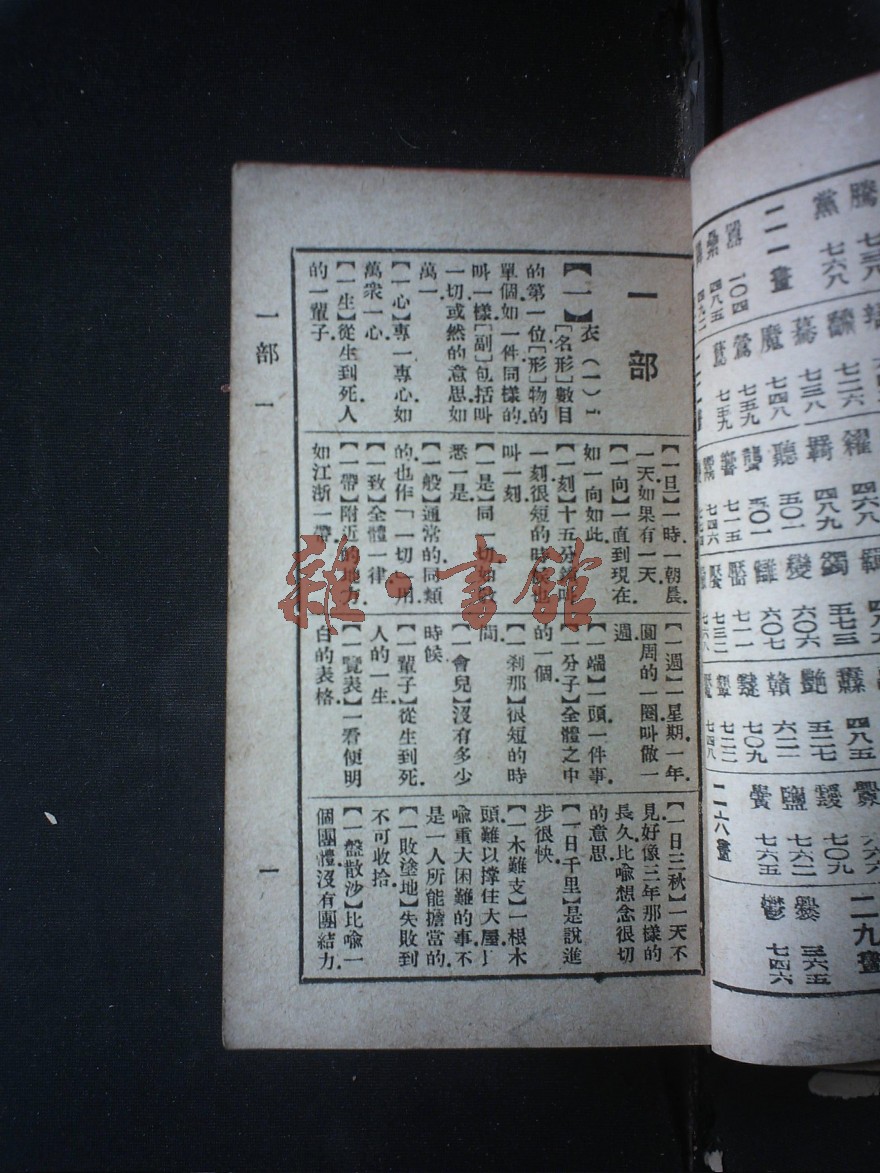 一部
【一】衣(一)ㄧ
[名形]數目
的第一位.[形]物的
單個.如一件同樣的.
叫一樣.[副]包括叫
一切或然的意思如
萬一.
【一心】專一專心.如
萬衆一心.
【一生】從生到死.人
的一輩子.
【一旦】一時.一朝晨.
一天.如果有一天.
【一向】一直到現在.
如一向如此.
【一刻】十五分鐘叫
一刻.很短的時候也
叫一刻.
【一是】同一切.如
悉一是.
【一般】通常的.同類
的.也作「一切」用
【一致】全體一律.
【一帶】附近的地方.
如江浙一帶.
【一週】一星期.一年.
圓周的一圈叫做一
週.
【一端】一頭.一件事.
【一分子】全體之中
的一個.
【一刹那】很短的時
間.
【一會兒】沒有多少
時候.
【一輩子】從生到死.
人的一生.
【一覽表】一看便明
白的表格.
【一日三秋】一天不
見好像三年那樣的
長久.比喩想念很切
的意思.
【一日千里】是說進
步很快.
【一木難支】一根木
頭難以撑住大屋.
喩重大困難的事.不
是一人所能擔當的.
【一敗塗地】失敗到
不可收拾.
【一盤散沙】比喩一
個團體沒有團結力.
一部 一
一
雜·書館
騰 七三八
黨 七六八
二一畫
一〇四
四八五
七二六
驀 七三八
魔 七四八
鶯 七五九
七五九
四六八
羇 四八九
聽 五〇一
聾 五〇一
七一五
七四六
四八九
蠲 五七三
變 六〇六
讎 六〇七
靨 七一一
七三二
四八五
艷 五二七
贛 六二一
七〇九
七二二
七四八
七〇九
鹽 七六二
黌 七六五
二六畫
二九畫
爨 三六五
鬱 七四六